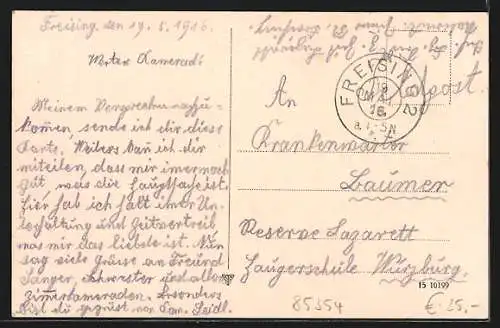 Freising, den 19. 5. 1916.
Kamerad!
Meinem Versprechen nachzu-
komen, sende ich dir diese
Karte. Weiters kan ich dir
mitteilen, dass mir immer noch
gut, was die Hauptsache ist.
Hier hab ich halt ihre Un-
terhaltung und Zeitvertreib
was mir das liebste ist. Nun
sag viele Grüsse an Freund
Sanger, Schwester und alle
Zimerkameraden. Besonders
bist du gegrüsst von Kam. Seidl.
FREISING 2
19
MAI
16.
Feldpost.
An
Krankenwärter
Baumer
Reserve Lazarett
Würzburg.
15 10199
85354
€ 25,-